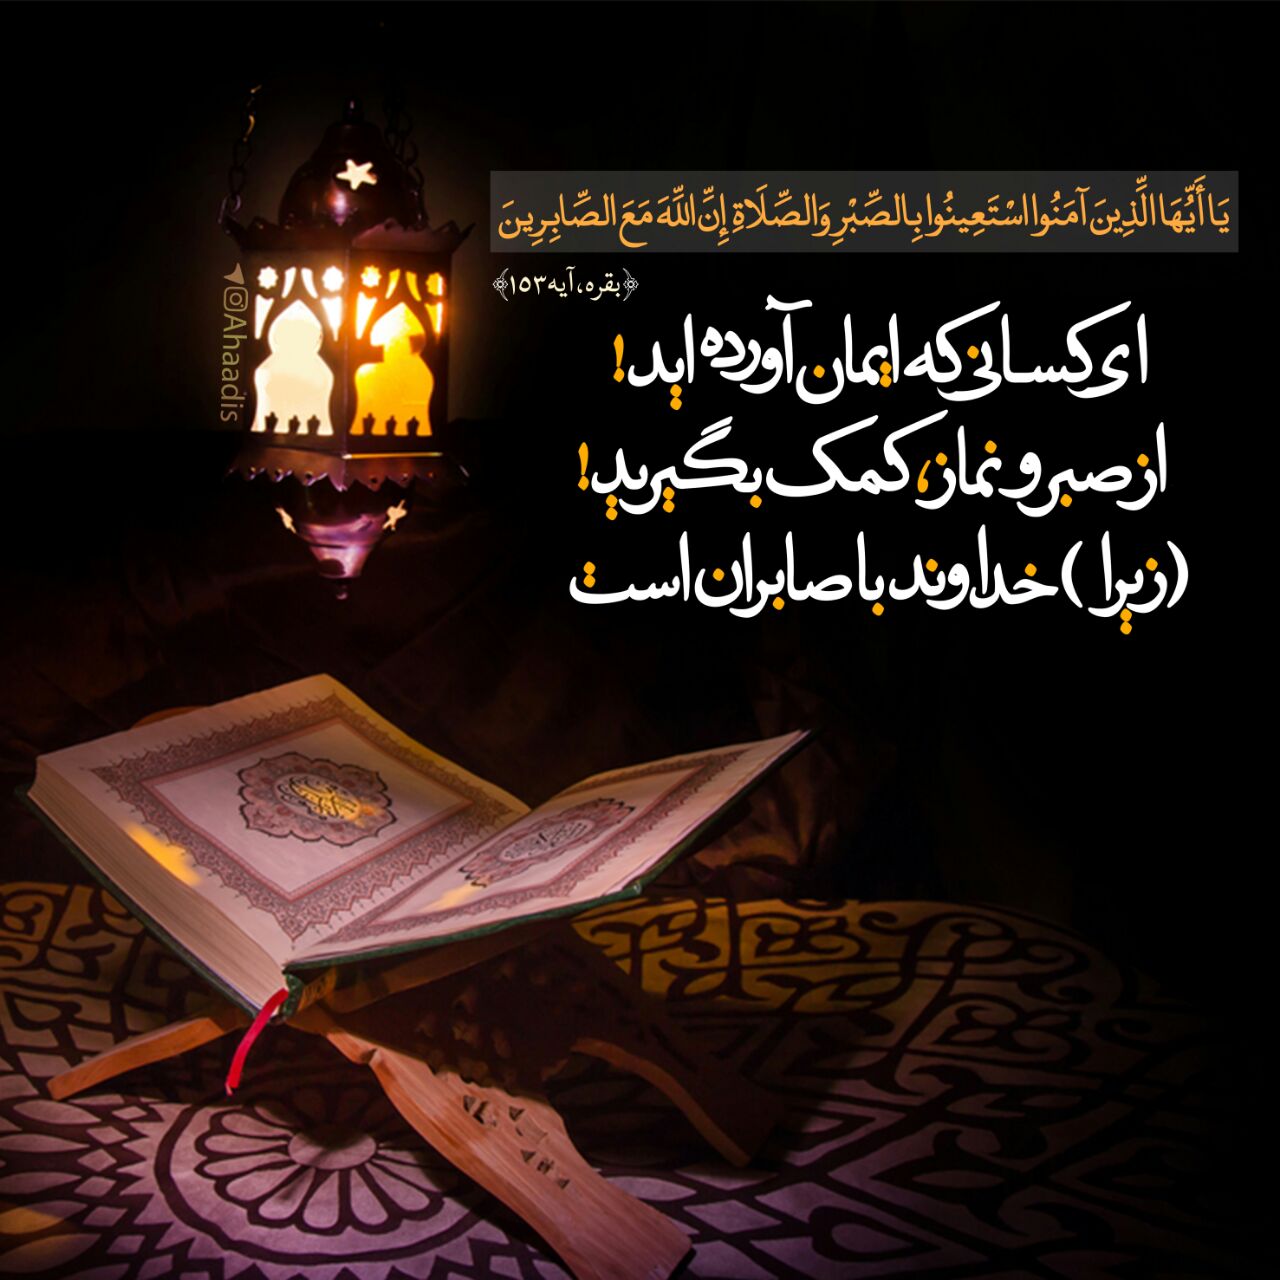 يَا أَيُّهَا الَّذِينَ آمَنُوا اسْتَعِينُوا بِالصَّبْرِ وَالصَّلَاةِ إِنَّ اللَّهَ مَعَ الصَّابِرِينَ
﴿بقره، آیه ۱۵۳﴾
ای کسانی که ایمان آورده اید!
از صبر و نماز، کمک بگیرید!
(زیرا) خداوند با صابران است
Ahaadis